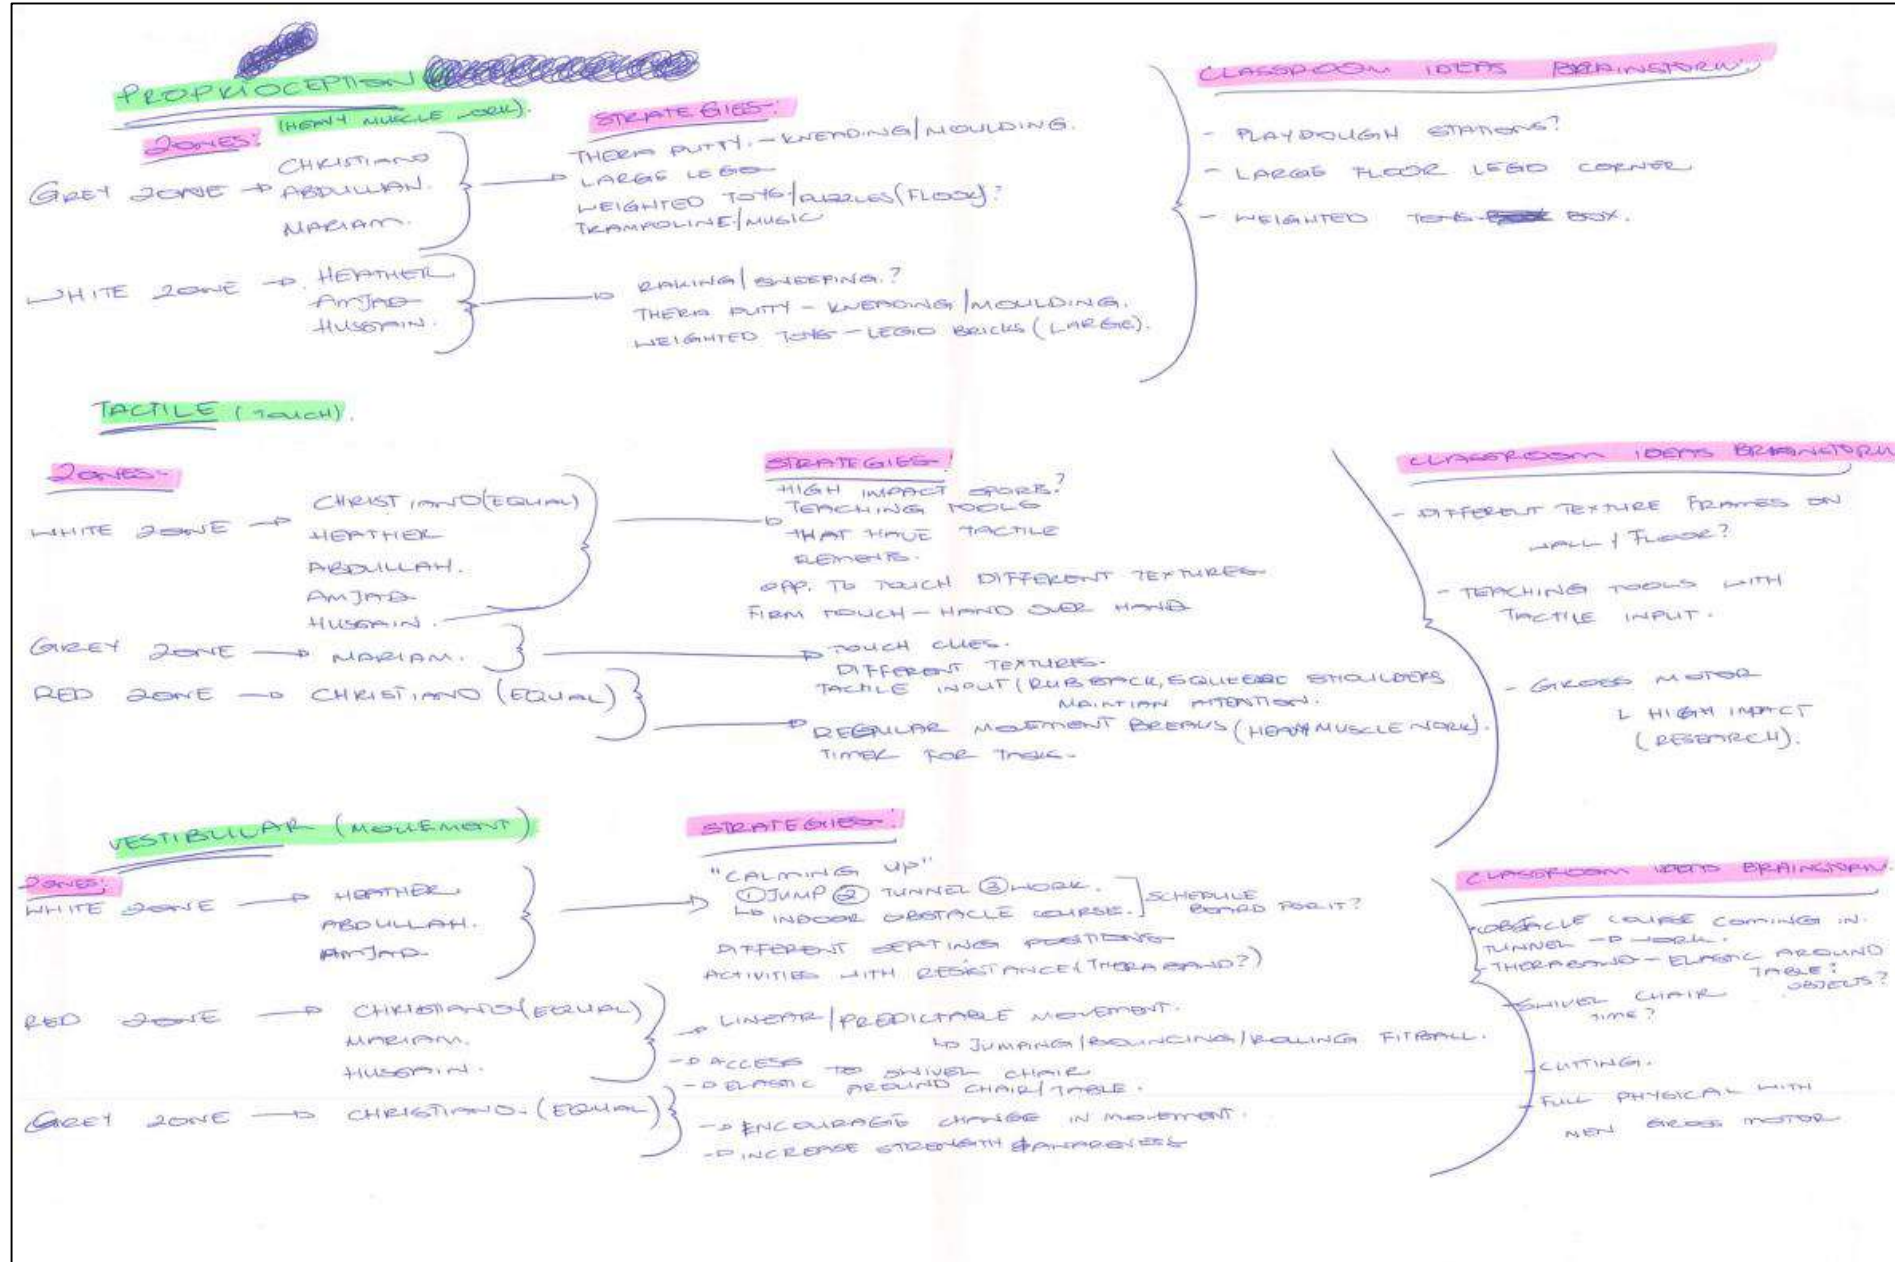 PROPRIOCEPTION
(HEAVY MUSCLE WORK).
ZONES:
GREY ZONE → CHRISTIANO
ABDULLAH.
MARIAM.
STRATEGIES:
THERA PUTTY. - KNEADING/MOULDING.
LARGE LEGO
WEIGHTED TOYS/PUZZLES (FLOOR)?
TRAMPOLINE/MUSIC
WHITE ZONE → HEATHER
AMJAD
HUSSAIN.
RAKING/SWEEPING.?
THERA PUTTY - KNEADING/MOULDING.
WEIGHTED TOYS - LEGO BRICKS (LARGE).
CLASSROOM IDEAS BRAINSTORM:
- PLAYDOUGH STATIONS?
- LARGE FLOOR LEGO CORNER
- WEIGHTED TOYS BOX.
TACTILE (TOUCH).
ZONES:
WHITE ZONE → CHRISTIANO (EQUAL)
HEATHER
ABDULLAH.
AMJAD
HUSSAIN.
STRATEGIES:
HIGH IMPACT SPORTS?
→ TEACHING TOOLS
THAT HAVE TACTILE
REMENTS.
OPP. TO TOUCH DIFFERENT TEXTURES
FIRM TOUCH - HAND OVER HAND
GREY ZONE → MARIAM.
→ TOUCH CUES.
DIFFERENT TEXTURES.
TACTILE INPUT (RUB BACK, SQUEEZE SHOULDERS
MAINTIAN ATTENTION.
RED ZONE → CHRISTIANO (EQUAL)
→ REGULAR MOVEMENT BREAKS (HEAVY MUSCLE WORK).
TIMER FOR TASKS.
CLASSROOM IDEAS BRAINSTORM
- DIFFERENT TEXTURE FRAMES ON
WALL / FLOOR?
- TEACHING TOOLS WITH
TACTILE INPUT.
- GROSS MOTOR
↳ HIGH IMPACT
(RESEARCH).
VESTIBULAR (MOVEMENT)
ZONES:
WHITE ZONE → HEATHER
ABDULLAH.
AMJAD.
STRATEGIES:
"CALMING UP"
① JUMP ② TUNNEL ③ WORK.
↳ INDOOR OBSTACLE COURSE.
SCHEDULE
BOARD FOR IT?
DIFFERENT SEATING POSITIONS
ACTIVITIES WITH RESISTANCE (THERABAND?)
RED ZONE → CHRISTIANO (EQUAL)
MARIAM.
HUSSAIN.
→ LINEAR/PREDICTABLE MOVEMENT.
↳ JUMPING/BOUNCING/ROLLING FITBALL.
→ ACCESS TO SWIVEL CHAIR
→ ELASTIC AROUND CHAIR/TABLE.
GREY ZONE → CHRISTIANO. (EQUAL)
→ ENCOURAGE CHANGE IN MOVEMENT.
→ INCREASE STRENGTH & AWARENESS
CLASSROOM IDEAS BRAINSTORM.
- OBSTACLE COURSE COMING IN.
TUNNEL → WORK.
- THERABAND - ELASTIC AROUND
TABLE?
OBJECTS?
- SWIVEL CHAIR
TIME?
- CUTTING.
- FULL PHYSICAL WITH
NEW GROSS MOTOR